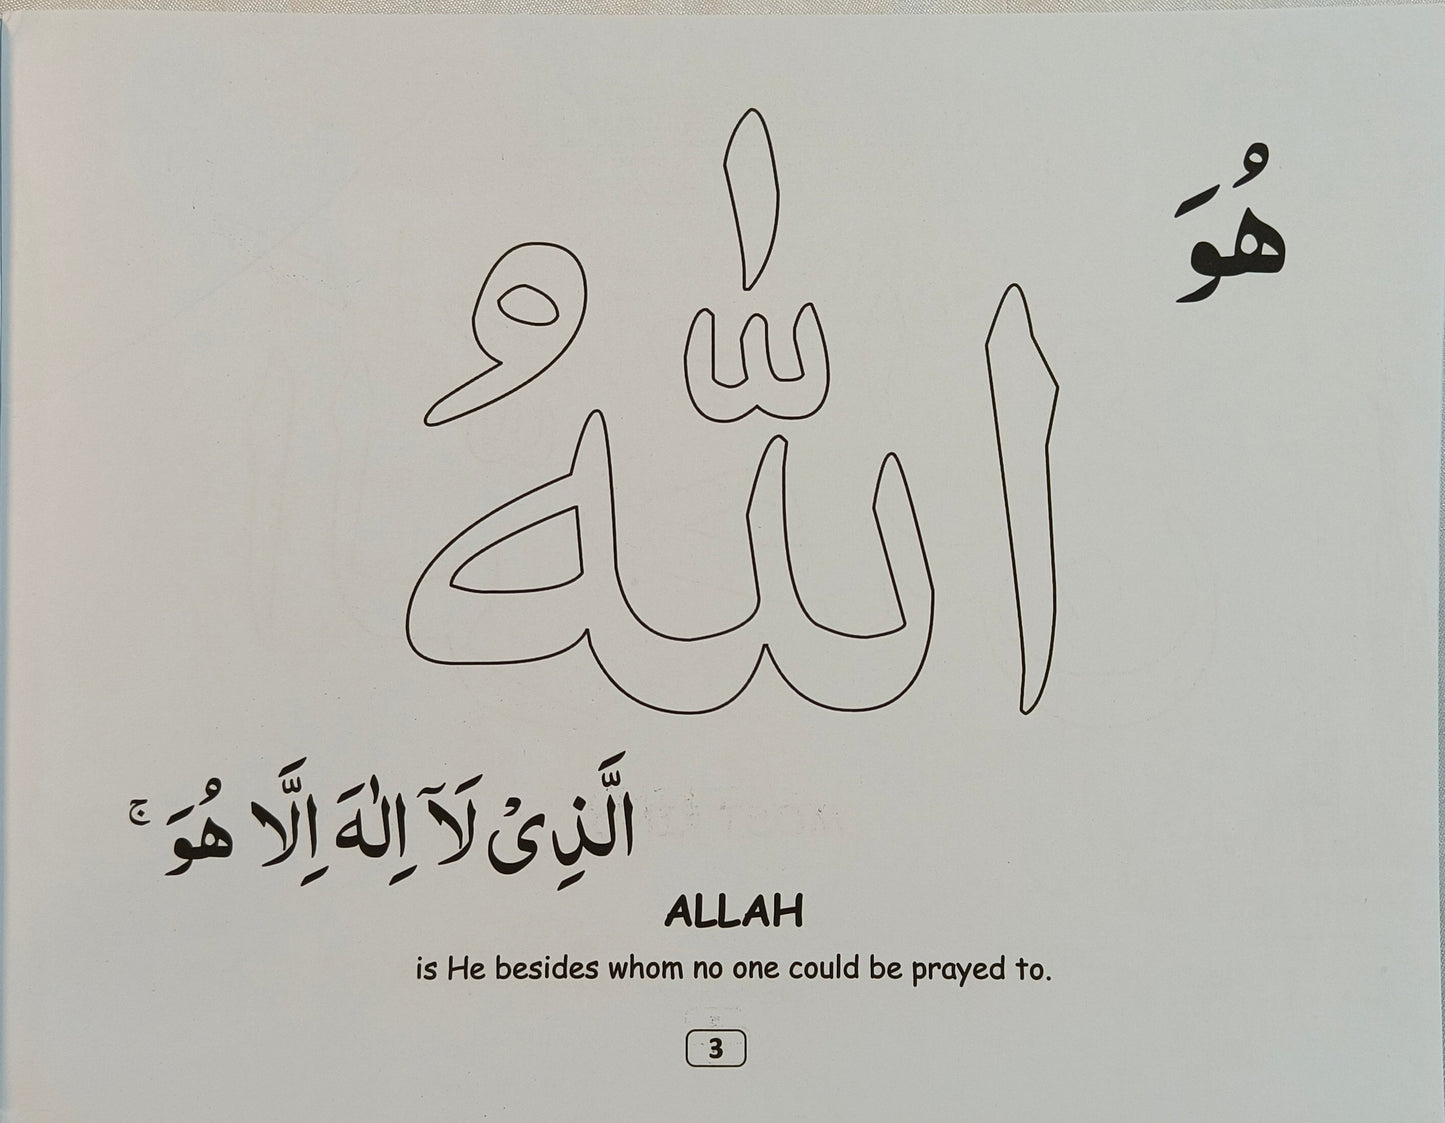 هُوَ
اللّٰهُ
الَّذِیْ لَآ اِلٰهَ اِلَّا هُوَ ۚ
ALLAH
is He besides whom no one could be prayed to.
3